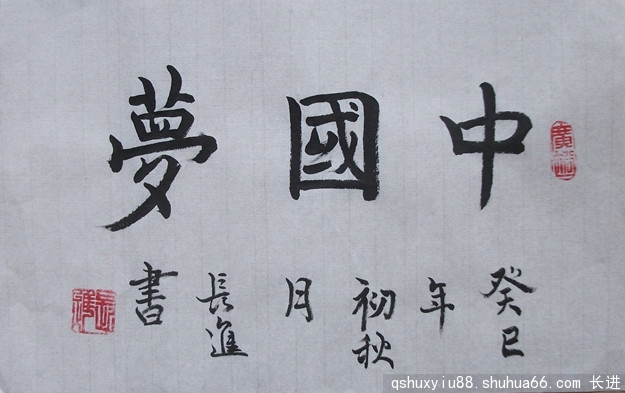 中國夢
癸巳年初秋月長進書
qshuxyiu88.shuhua66.com 长进